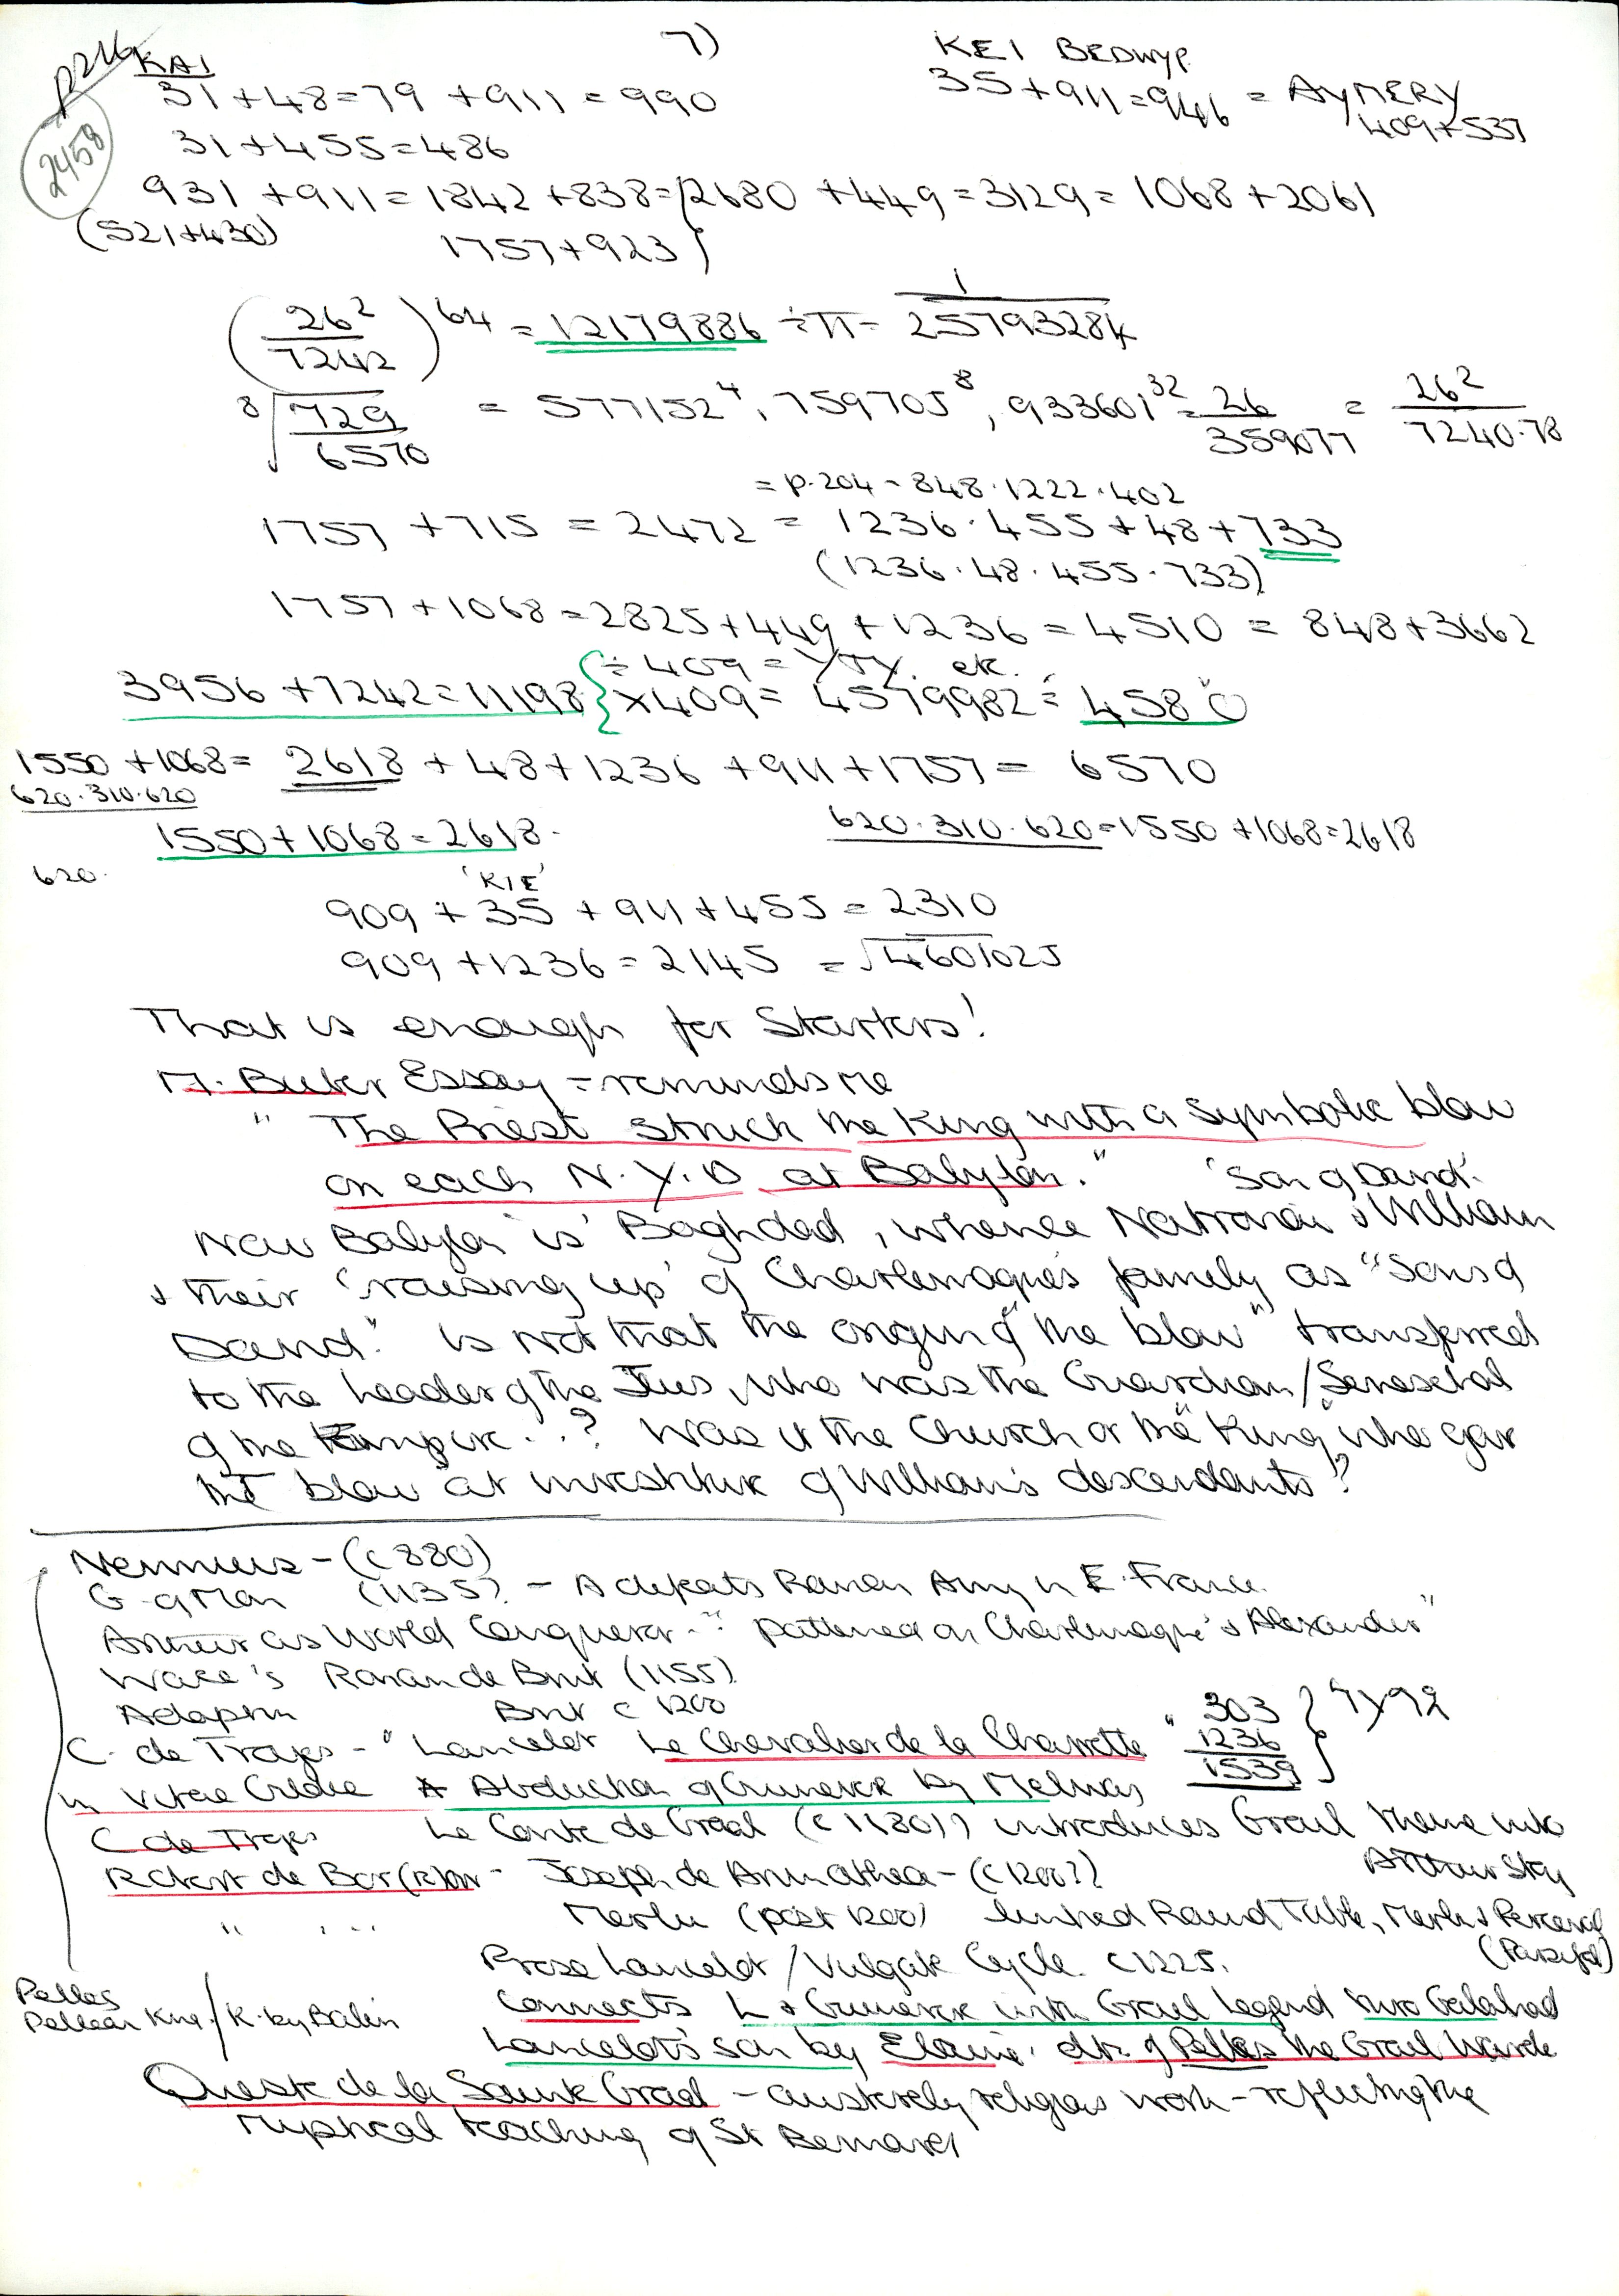 p216
2458
7)
KAI
31 + 48 = 79 + 911 = 990
KEI BEDWYR
35 + 911 = 946 = AYMERY
409 + 537
31 + 455 = 486
931 + 911 = 1842 + 838 = 2680 + 449 = 3129 = 1068 + 2061
(521+430)
1757 + 923
(26² / 7242)^64 = 12179886 ÷ π = 1 / 25793284
⁸√(729 / 6570) = 577152⁴, 759705⁸, 933601³² = 26 / 359077 = 26² / 7240.78
= p.204 - 848.1222.402
1757 + 715 = 2472 = 1236.455 + 48 + 733
(1236.48.455.733)
1757 + 1068 = 2825 + 449 + 1236 = 4510 = 848 + 3662
÷ 409 = etc.
3956 + 7242 = 11198 { x 409 = 4579982 = 4580
1550 + 1068 = 2618 + 48 + 1236 + 911 + 1757 = 6570
620.310.620
1550 + 1068 = 2618.
620.310.620 = 1550 + 1068 = 2618
620.
'KIE'
909 + 35 + 911 + 455 = 2310
909 + 1236 = 2145 = √4601025
That is enough for Starters!
M. Buber Essay = reminds me
" The Priest struck the King with a symbolic blow
on each N.Y.D at Babylon."
'Son of David'.
Now Babylon 'is' Baghdad, whence Natronai & William
& their 'raising up' of Charlemagne's family as "Sons of
David." Is not that the origin of "the blow" transferred
to the leader of the Jews, who was the Guardian/Seneschal
of the Empire..? Was it the Church or the "King" who gave
the blow at investiture of William's descendants?
Nennius - (c 880)
G of Mon (1135?) - A defeats Roman Army in E. France.
Arthur as World Conqueror - "patterned on Charlemagne & Alexander"
Wace's Roman de Brut (1155)
Brut c 1200
C. de Troyes - "Lancelot Le Chevalier de la Charrette"
303
1236
1539
in Vitae Gildae * Abduction of Guinevere by Melwas
C de Troyes Le Conte de Graal (c 1180?) introduces Grail theme into
Arthur Story
Robert de Bor(r)on - Joseph de Arimathea - (c 1200?)
" " Merlin (post 1200) linked Round Table, Merlin & Perceval
(Parsifal)
Prose Lancelot / Vulgate Cycle. c 1225.
Connects L & Guinevere with Grail Legend thro Galahad
Pelles
Pellean King / K. by Balin
Lancelot's son by Elaine, dtr. of Pelles the Grail Warde
Queste de la Sainte Graal - austerely religious work - reflecting the
mystical teaching of St Bernard